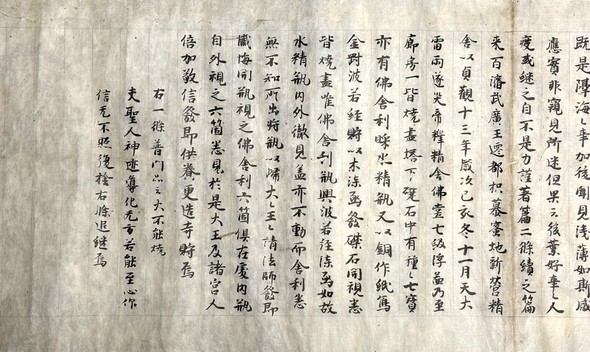 既是薄海之事加復聞見淺薄如斯感
應實非窺見所述但冀云後葉好事之人
或繼之自不是力謹著篇二條續之篇
末百濟武廣王遷都枳慕蜜地新營精
舍以貞觀十三年歲次己亥冬十一月天大
雷雨遂災帝釋精舍佛堂七級浮啚乃至
廊房一皆燒盡塔下礎石中有種々七寶
亦有佛舍利睬水精瓶又以銅作紙寫
金剛波若経貯以木漆函發礎石開視悉
皆燒盡唯佛舍利瓶與波若経漆函如故
水精瓶內外徹見盖亦不動而舍利悉
無不知所出將瓶以歸大々王々請法師發即
懺悔開瓶視之佛舍利六箇俱在處內瓶
自外視之六箇悉見於是大王及諸宮人
倍加敬信發即供養更造寺貯焉
右一條普門品云火不能燒
夫聖人神迹導化无方若能至心仰
信无不照復捨右條追継焉